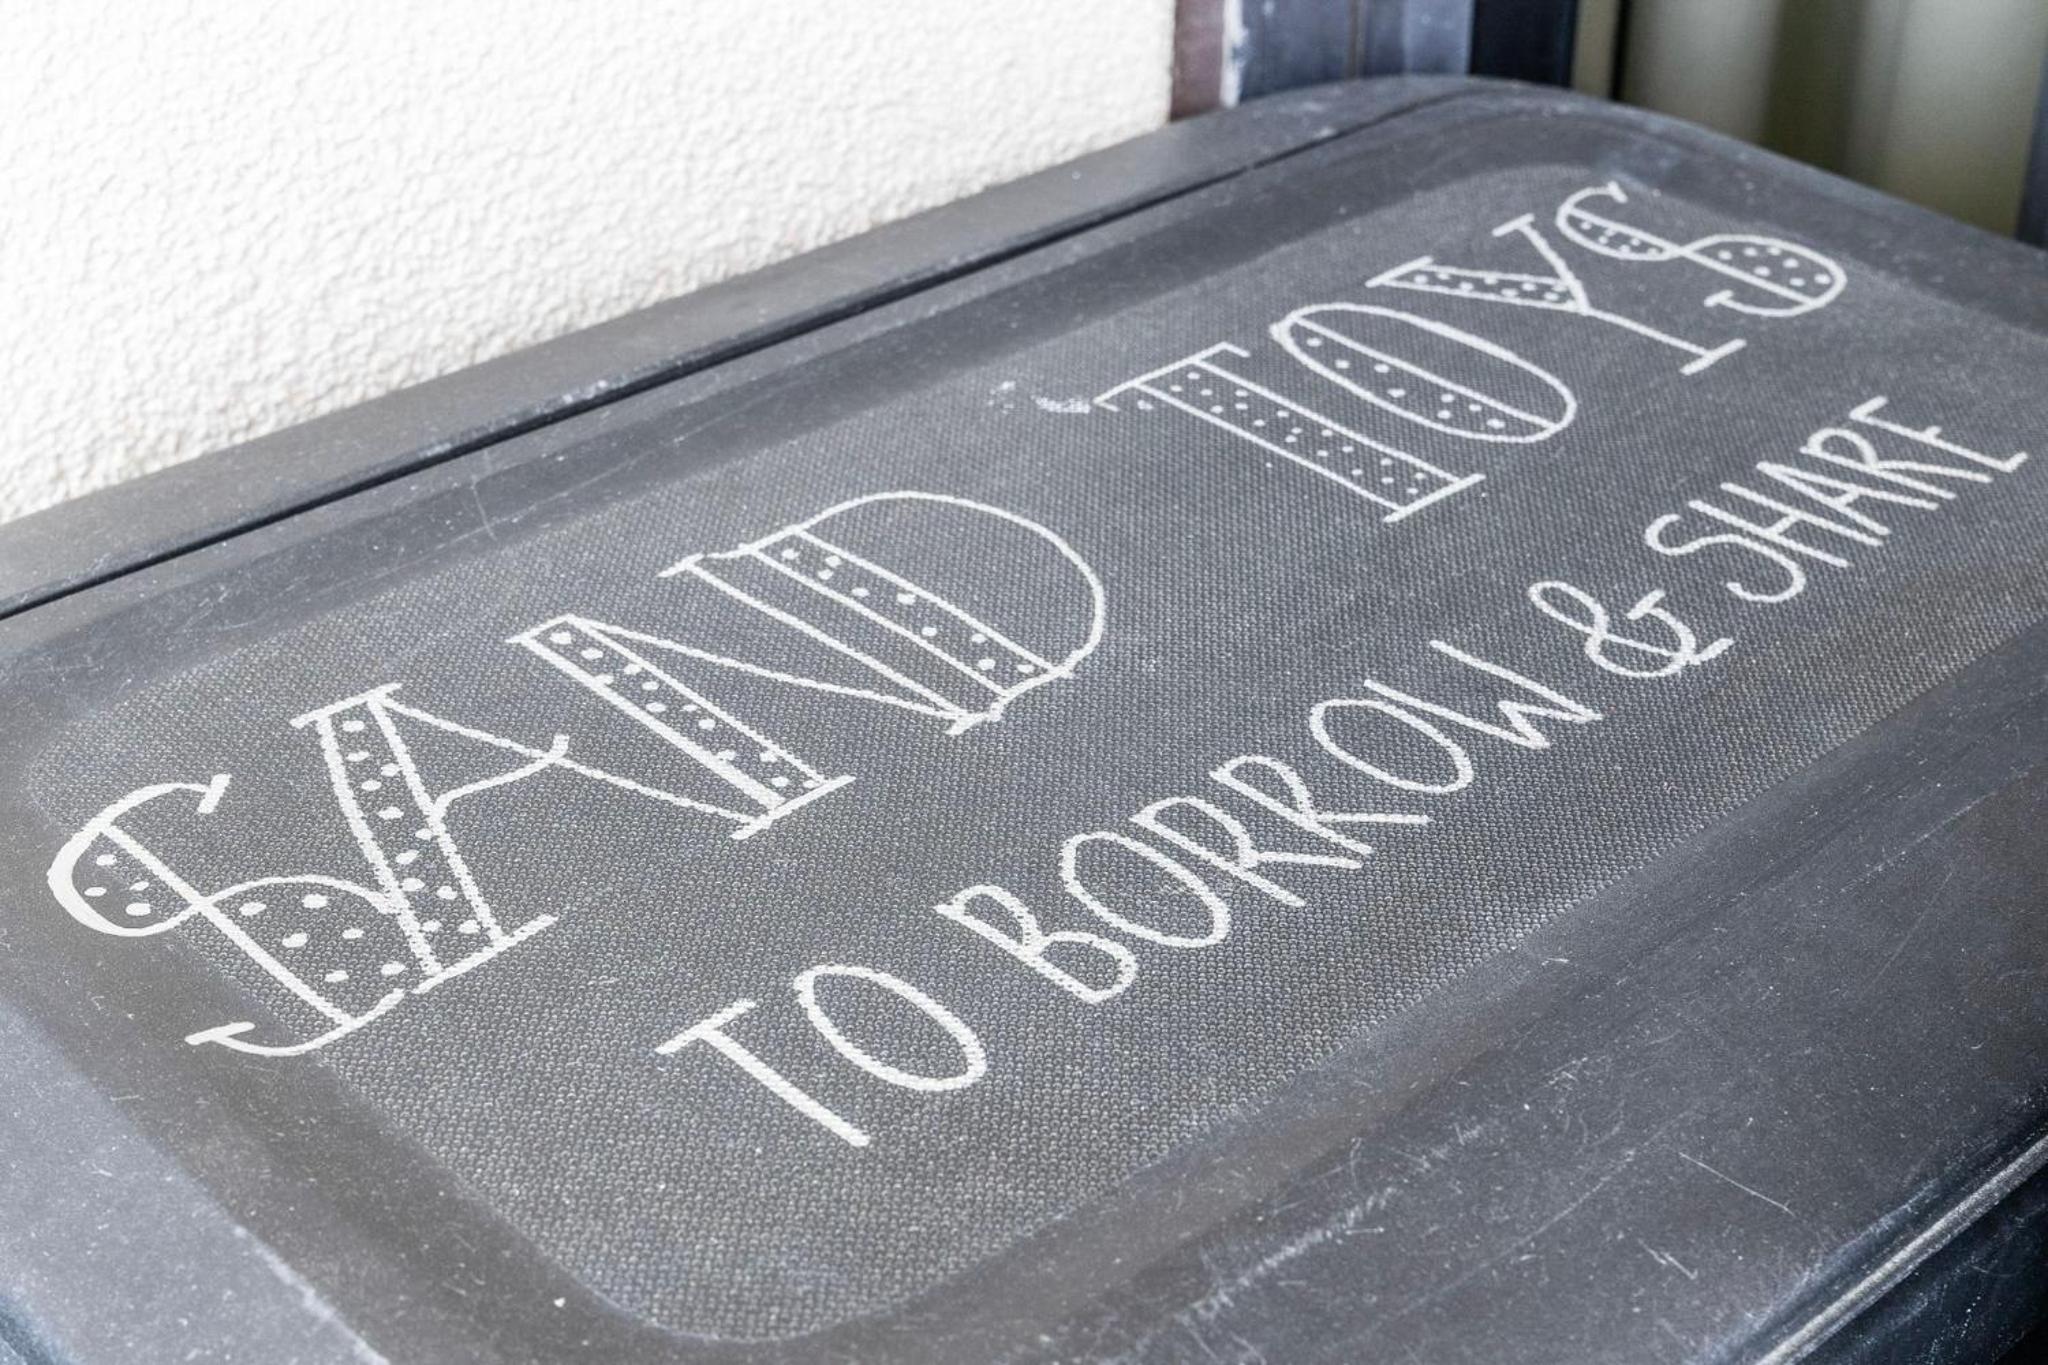 SAND TOYS
TO BORROW & SHARE